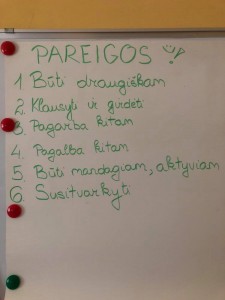 PAREIGOS
1 Būti draugiškam
2. Klausyti ir girdėti
3. Pagarba kitam
4. Pagalba kitam
5. Būti mandagiam, aktyviam
6. Susitvarkyti